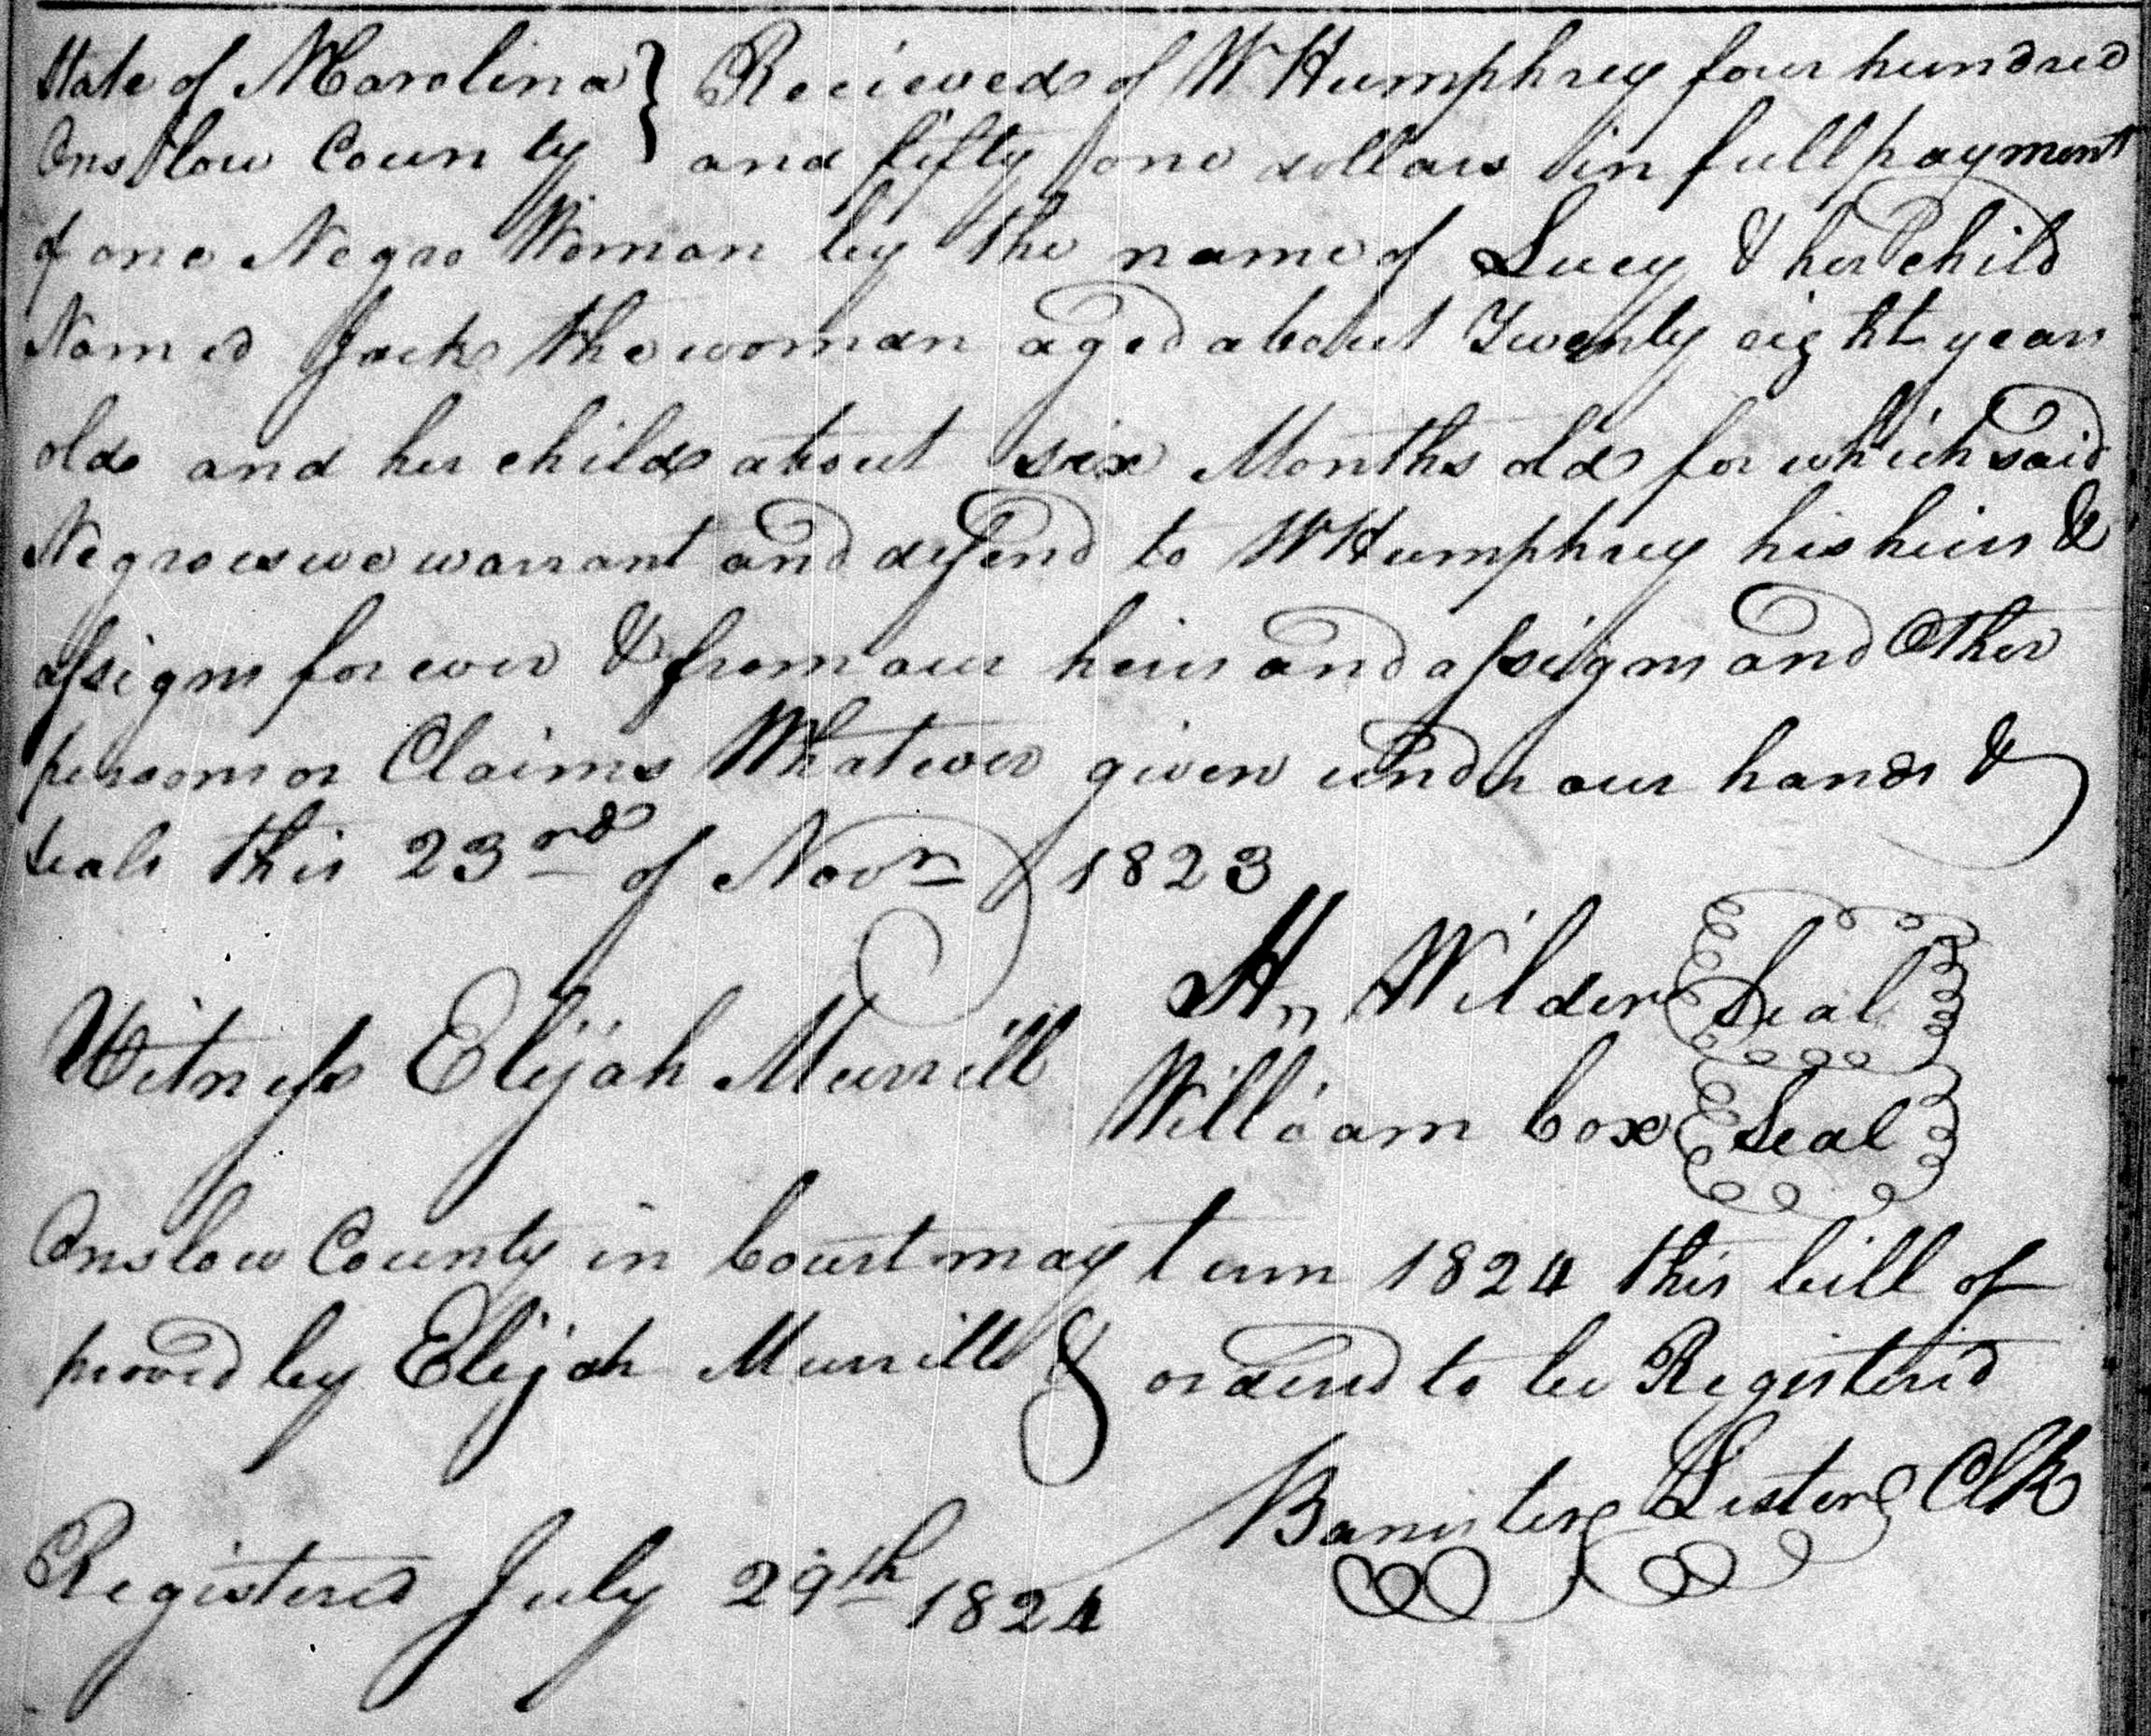 State of N Carolina } Recieved of W Humphrey four hundred
Onslow County } and fifty one dollars in full payment
of one Negro Woman by the name of Lucy & her child
Named Jack the woman aged about Twenty eight years
old and her child about six Months old for which said
Negroes we warrant and defend to W Humphrey his heirs &
assigns for ever & from our heirs and assigns and Other
persons or Claims Whatever given under our hands &
seals this 23rd of Novr 1823
Hn Wilder Seal
Witness Elijah Murrill William Cox Seal
Onslow County in Court may term 1824 this bill of
proved by Elijah Murrill & ordered to be Registered
Banister Lester Clk
Registered July 29th 1824